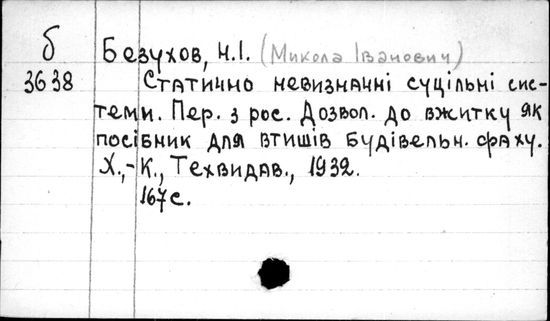 б
3638
Безухов, Н.І. (Микола Іванович)
Статично невизначні суцільні сис-
теми. Пер. з рос. Дозвол. до вжитку як
посібник для втишів будівельн. фаху.
Х.,-К., Техвидав., 1932.
167с.